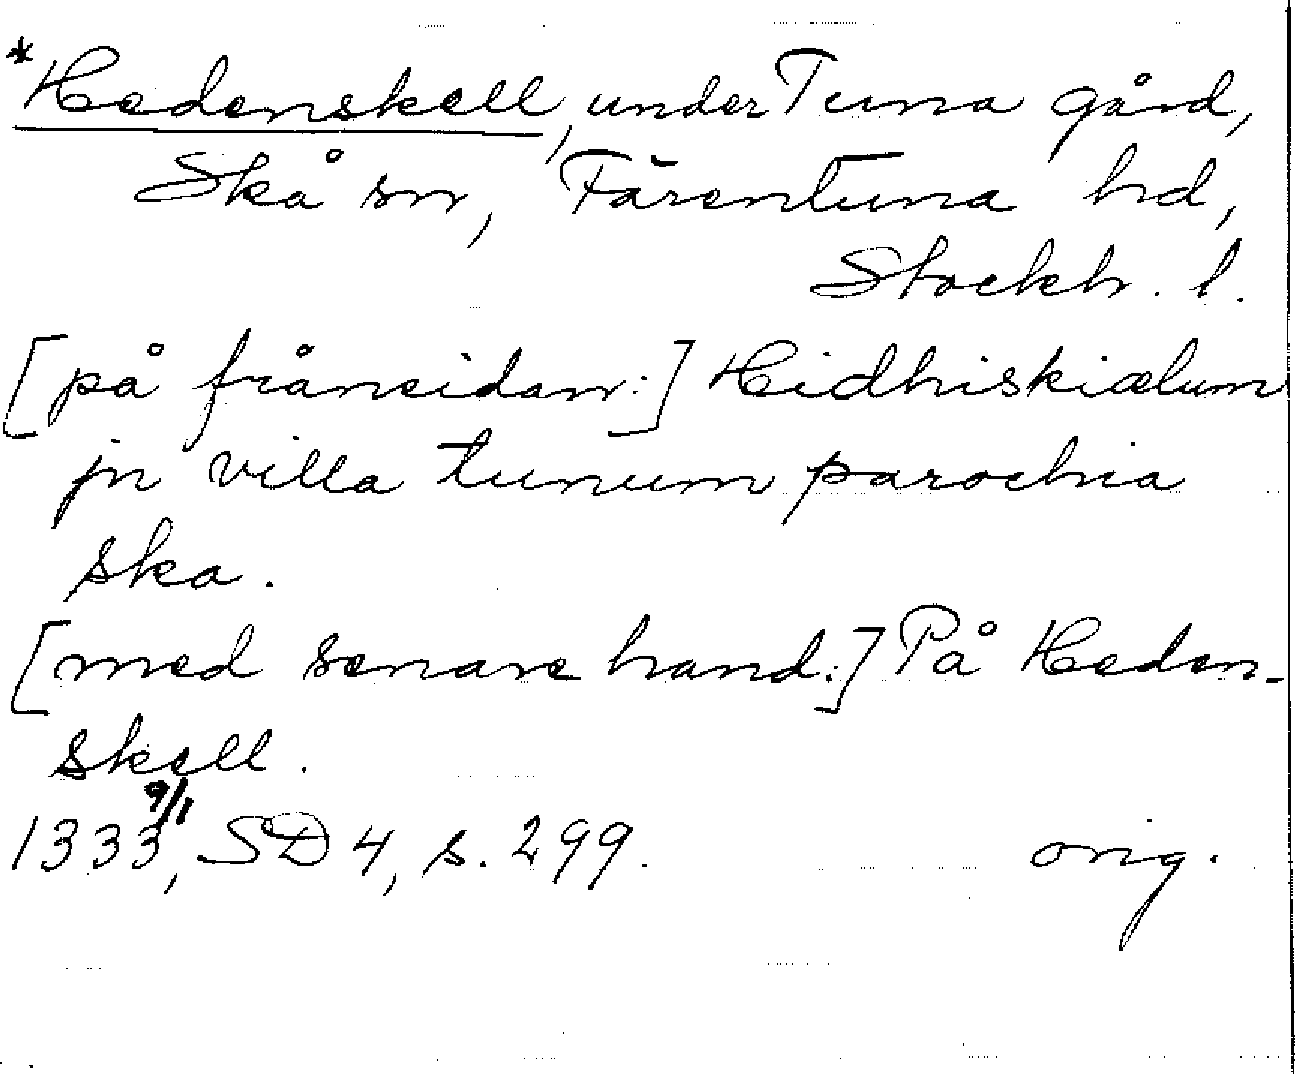 *Hedenskell, under Tuna gård,
Skå sn, Färentuna hd,
Stockh. l.
[på frånsidan:] Hidhiskiælum
jn villa tunum parochia
ska.
[med senare hand:] På Heden-
skell.
1333 9/1, SD 4, s. 299. orig.